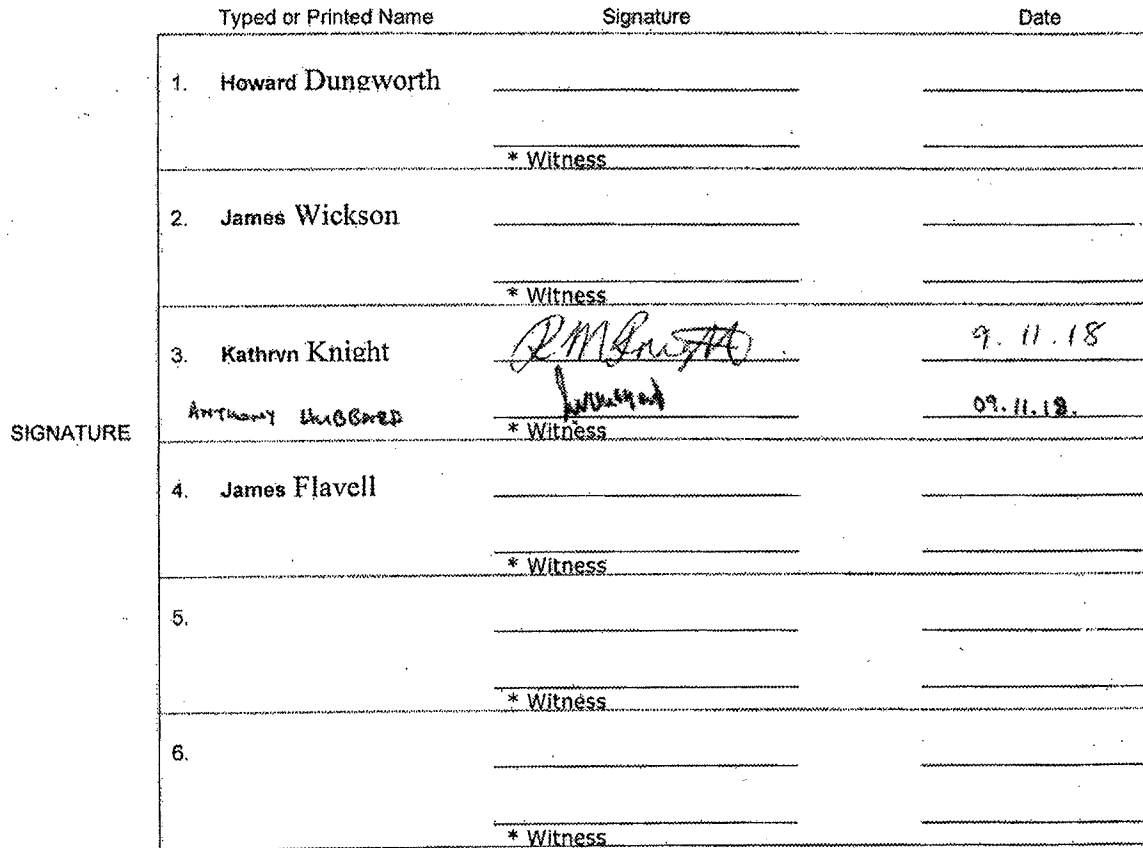 Typed or Printed Name Signature Date
1. Howard Dungworth
* Witness
2. James Wickson
* Witness
3. Kathryn Knight 9.11.18
ANTHONY HUBBARD 09.11.18.
SIGNATURE * Witness
4. James Flavell
* Witness
5.
* Witness
6.
* Witness